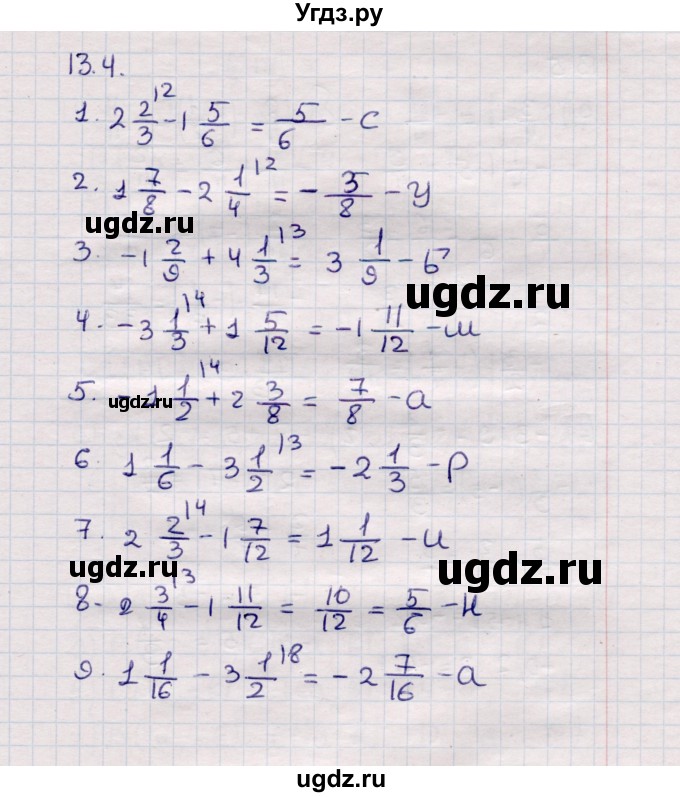 Угдз.ру
13.4.
1. 2 2/3 |2 - 1 5/6 = 5/6 - С
2. 1 7/8 - 2 1/4 |2 = - 3/8 - У
ugdz.ru
3. -1 2/9 + 4 1/3 |3 = 3 1/9 - Б
ugdz.ru
4. -3 1/3 |4 + 1 5/12 = -1 11/12 - Ш
5. -1 1/2 |4 + 2 3/8 = 7/8 - а
ugdz.ru
6. 1 1/6 - 3 1/2 |3 = -2 1/3 - Р
7. 2 2/3 |4 - 1 7/12 = 1 1/12 - И
ugdz.ru
ugdz.ru
8. 2 3/4 |3 - 1 11/12 = 10/12 = 5/6 - Н
9. 1 1/16 - 3 1/2 |8 = -2 7/16 - а
ugdz.ru